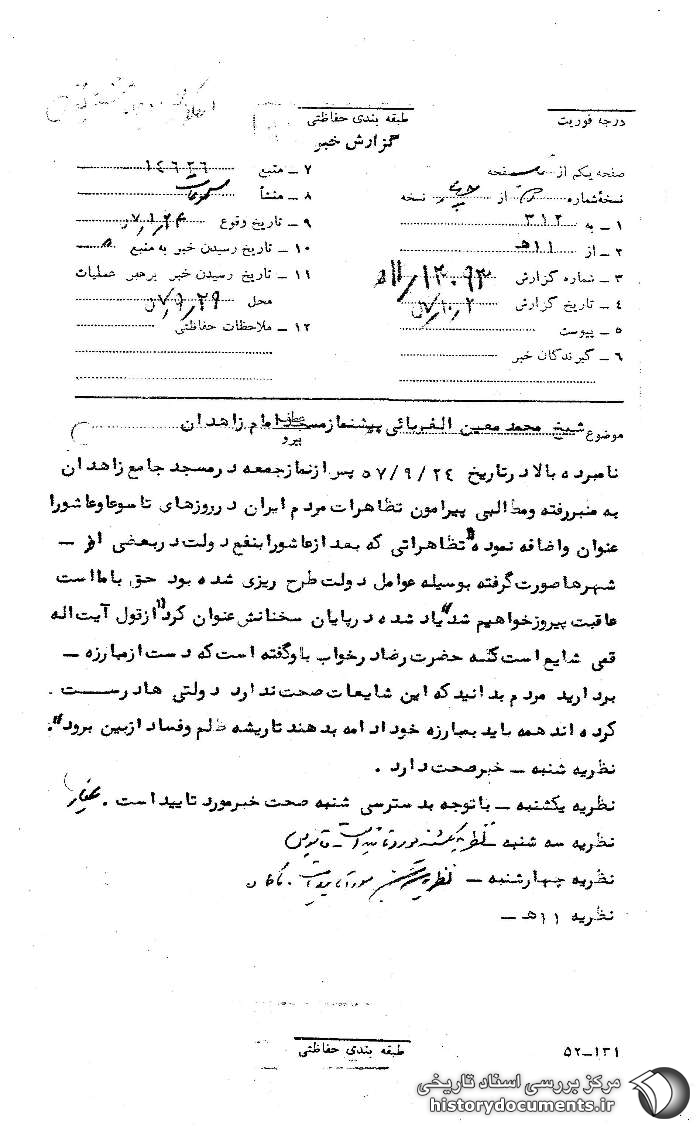 درجه فوریت
طبقه بندی حفاظتی
گزارش خبر
صفحه یکم از صفحه
نسخهٔ شماره از نسخه
۱ - به ۳۱۲
۲ - از ۱۱ه‍
۳ - شماره گزارش ۱۲۰۹۳/۱۱ه‍
۴ - تاریخ گزارش ۵۷/۱۰/۲
۵ - پیوست
۶ - گیرندگان خبر
۷ - منبع ۱۴۶۲۶
۸ - منشأ
۹ - تاریخ وقوع
۱۰ - تاریخ رسیدن خبر به منبع
۱۱ - تاریخ رسیدن خبر برهبر عملیات
محل ۵۷/۹/۲۹
۱۲ - ملاحظات حفاظتی
موضوع شیخ محمد معین الغربائی پیشنماز مسجد امام زاهدان
پیرو
نامبرده بالا در تاریخ ۵۷/۹/۲۴ پس از نماز جمعه در مسجد جامع زاهدان
به منبر رفته ومطالبی پیرامون تظاهرات مردم ایران در روزهای تاسوعا وعاشورا
عنوان واضافه نموده "تظاهراتی که بعد از عاشورا بنفع دولت در بعضی از -
شهرها صورت گرفته بوسیله عوامل دولت طرح ریزی شده بود حق با ما است
عاقبت پیروز خواهیم شد" یاد شده در پایان سخنانش عنوان کرد "از قول آیت اله
قمی شایع است که حضرت رضا در خواب باو گفته است که دست از مبارزه -
بردارید مردم بدانید که این شایعات صحت ندارد دولتی ها درست .
کرده اند همه باید بمبارزه خود ادامه بدهند تا ریشه ظلم وفساد از بین برود".
نظریه شنبه - خبر صحت دارد .
نظریه یکشنبه - با توجه بدسترسی شنبه صحت خبر مورد تایید است . غفار
نظریه سه شنبه - نظریه یکشنبه مورد تائید است -
نظریه چهارشنبه - نظریه سه شنبه مورد تایید است .
نظریه ۱۱ه‍ -
طبقه بندی حفاظتی
۵۲-۱۳۱
مرکز بررسی اسناد تاریخی
historydocuments.ir